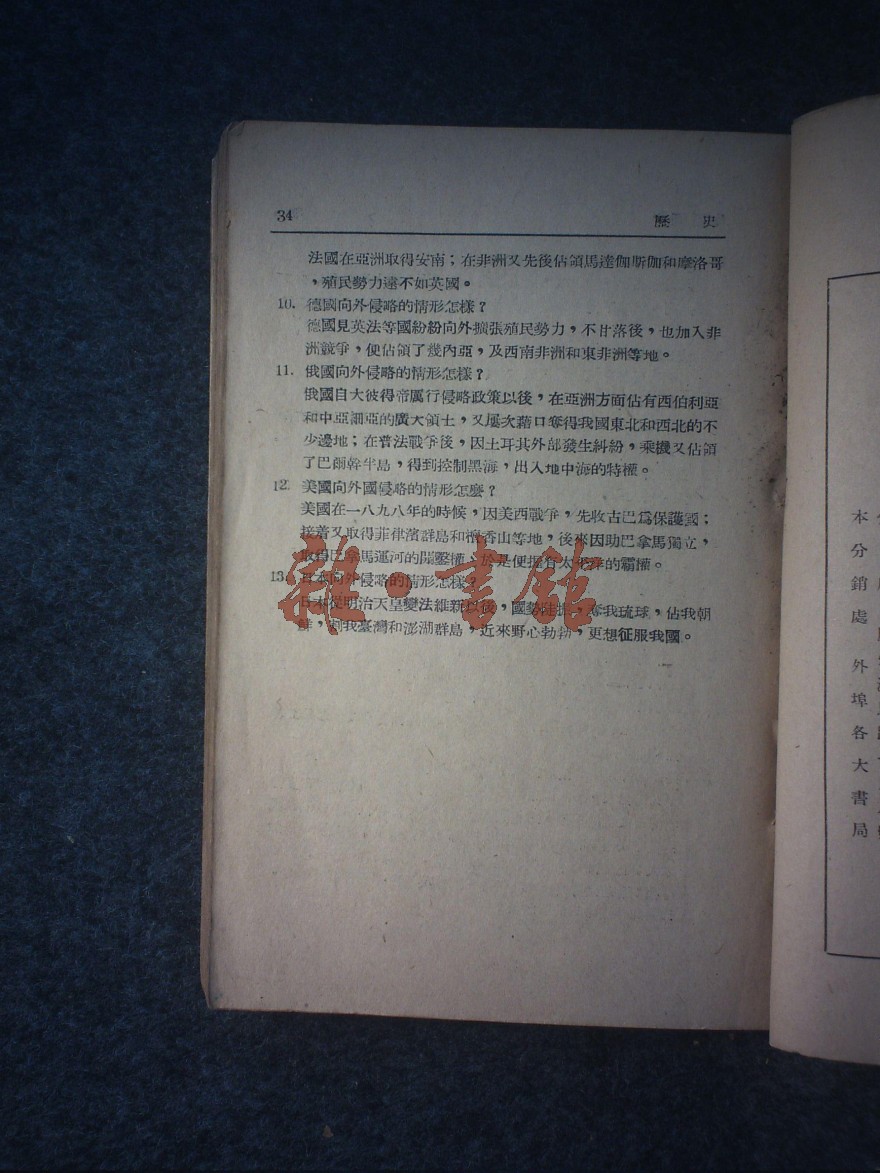 34
歷 史
法國在亞洲取得安南；在非洲又先後佔領馬達伽斯伽和摩洛哥
，殖民勢力遠不如英國。
10. 德國向外侵略的情形怎樣？
德國見英法等國紛紛向外擴張殖民勢力，不甘落後，也加入非
洲競爭，便佔領了幾內亞，及西南非洲和東非洲等地。
11. 俄國向外侵略的情形怎樣？
俄國自大彼得帝厲行侵略政策以後，在亞洲方面佔有西伯利亞
和中亞細亞的廣大領土，又屢次藉口奪得我國東北和西北的不
少邊地；在普法戰爭後，因土耳其外部發生糾紛，乘機又佔領
了巴爾幹半島，得到控制黑海，出入地中海的特權。
12. 美國向外國侵略的情形怎麼？
美國在一八九八年的時候，因美西戰爭，先收古巴爲保護國；
接着又取得菲律濱群島和檀香山等地，後來因助巴拿馬獨立，
取得巴拿馬運河的開鑿權，於是便握有太平洋的霸權。
13. 日本向外侵略的情形怎樣？
日本從明治天皇變法維新以後，國勢陡振，奪我琉球，佔我朝
鮮，割我臺灣和澎湖群島，近來野心勃勃，更想征服我國。
雜·書館
本分銷處 外埠各大書局